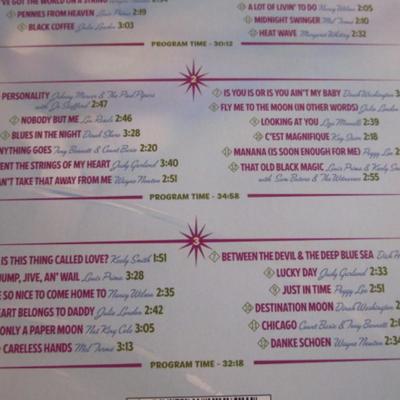 'VE GOT THE WORLD ON A STRING
PENNIES FROM HEAVEN Louis Prima 2:19
BLACK COFFEE Julie London 3:03
A LOT OF LIVIN' TO DO Nancy Wilson 2:05
MIDNIGHT SWINGER Mel Torme 2:10
HEAT WAVE Margaret Whiting 2:32
PROGRAM TIME - 30:12
2
PERSONALITY Johnny Mercer & The Pied Pipers
with Jo Stafford 2:47
NOBODY BUT ME Lou Rawls 2:46
BLUES IN THE NIGHT Dinah Shore 3:28
NYTHING GOES Tony Bennett & Count Basie 2:20
ENT THE STRINGS OF MY HEART Judy Garland 3:40
AN'T TAKE THAT AWAY FROM ME Wayne Newton 2:51
IS YOU IS OR IS YOU AIN'T MY BABY Dinah Washington
FLY ME TO THE MOON (IN OTHER WORDS) Julie London
LOOKING AT YOU Liza Minnelli 2:39
C'EST MAGNIFIQUE Kay Starr 2:18
MANANA (IS SOON ENOUGH FOR ME) Peggy Lee
THAT OLD BLACK MAGIC Louis Prima & Keely
with Sam Butera & The Witnesses 2:55
PROGRAM TIME - 34:58
3
IS THIS THING CALLED LOVE? Keely Smith 1:51
UMP, JIVE, AN' WAIL Louis Prima 3:28
E SO NICE TO COME HOME TO Nancy Wilson 2:35
EART BELONGS TO DADDY Julie London 2:42
ONLY A PAPER MOON Nat King Cole 3:05
CARELESS HANDS Mel Torme 3:13
7 BETWEEN THE DEVIL & THE DEEP BLUE SEA
8 LUCKY DAY Judy Garland 2:33
9 JUST IN TIME Peggy Lee 2:51
10 DESTINATION MOON Dinah Washington
11 CHICAGO Count Basie & Tony Bennett
12 DANKE SCHOEN Wayne Newton 2:34
PROGRAM TIME - 32:18